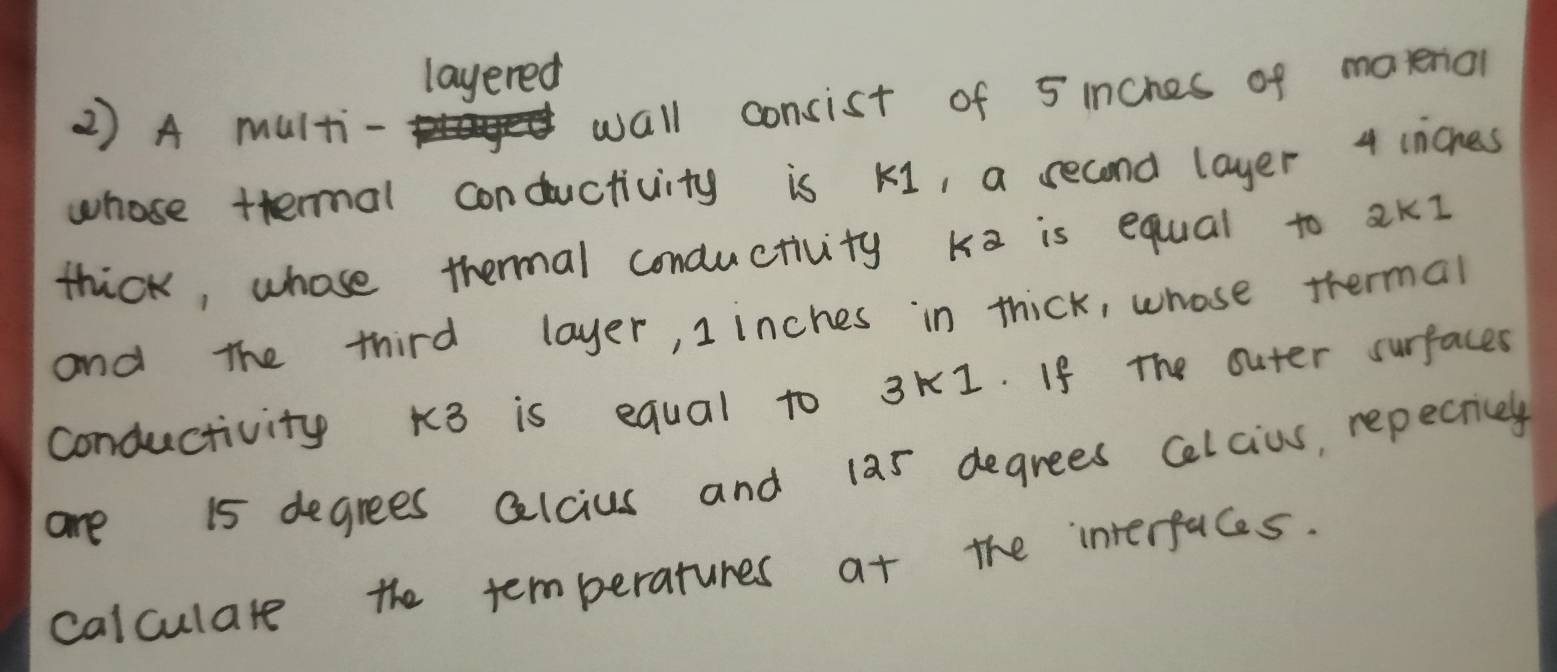 layered
2) A multi- played wall consist of 5 inches of material
whose ttermal conductivity is K1, a second layer 4 inches
thick, whose thermal conductivity K2 is equal to 2K1
and the third layer, 1 inches in thick, whose thermal
conductivity K3 is equal to 3K1. If the outer surfaces
are 15 degrees celcius and 125 degrees celcius, repectively
calculate the temperatures at the interfaces.